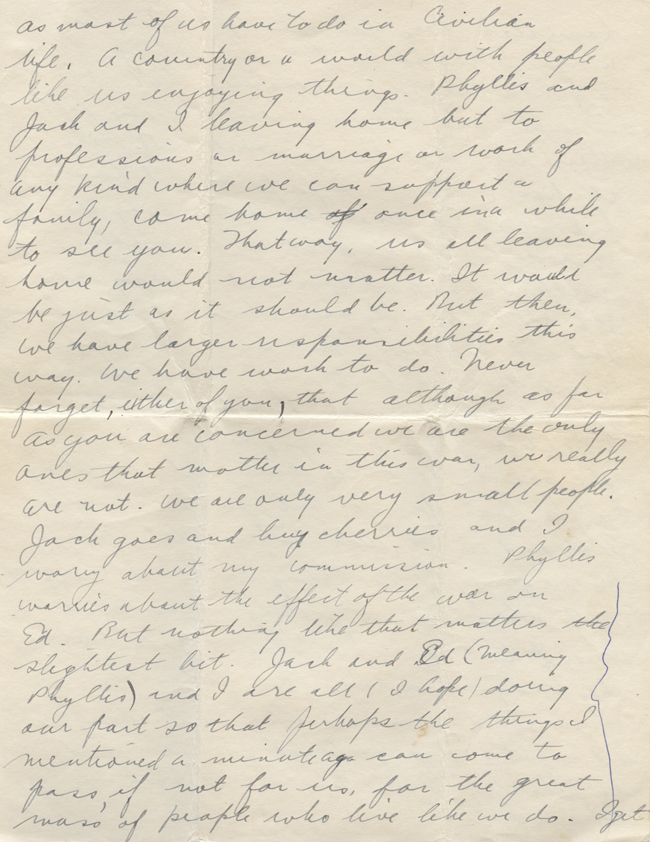 as most of us have to do in Civilian
life. A country or a world with people
like us enjoying things. Phyllis and
Jack and I leaving home but to
professions or marriage or work of
any kind where we can support a
family, come home of once in a while
to see you. That way, us all leaving
home would not matter. It would
be just as it should be. But then,
we have larger responsibilities this
way. We have work to do. Never
forget, either of you, that although as far
as you are concerned we are the only
ones that matter in this war, we really
are not. We are only very small people.
Jack goes and buy cherries and I
worry about my commission. Phyllis
worries about the effect of the war on
Ed. But nothing like that matters the
slightest bit. Jack and Ed (meaning
Phyllis) and I are all (I hope) doing
our part so that perhaps the things I
mentioned a minute ago can come to
pass, if not for us, for the great
mass of people who live like we do. I get